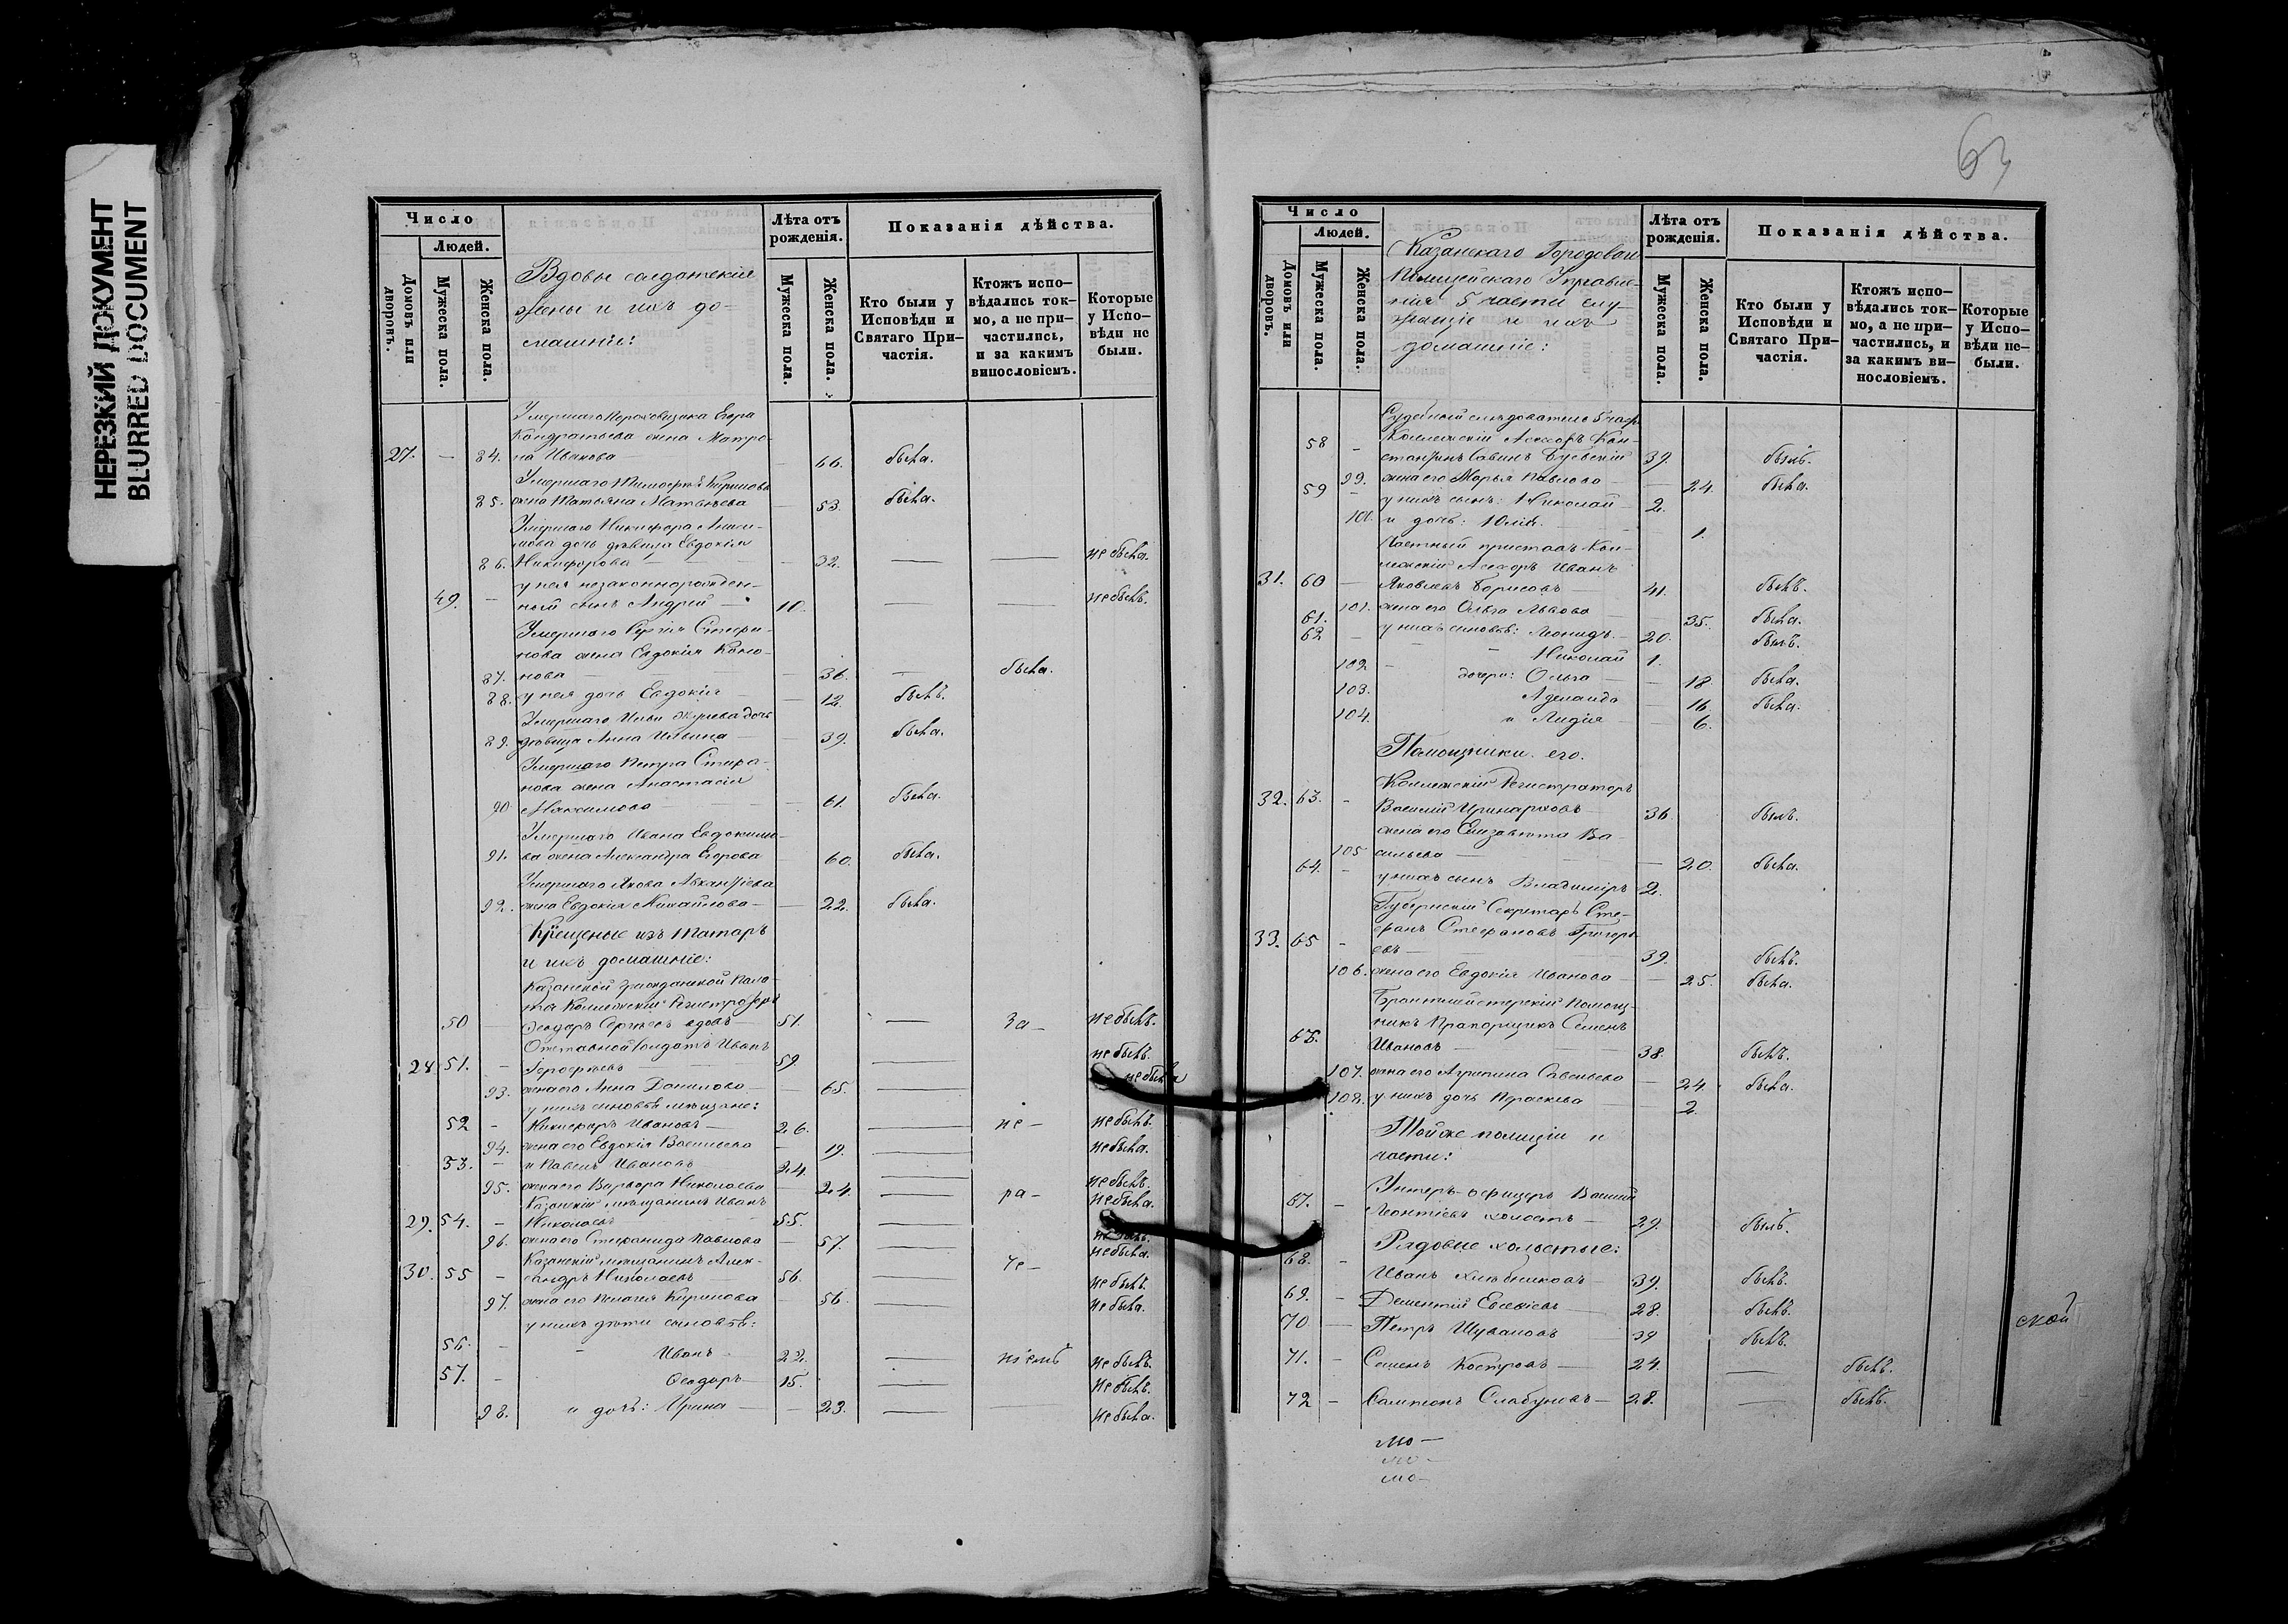 НЕРЕЗКИЙ ДОКУМЕНТ
BLURRED DOCUMENT
Число
Людей.
Домовъ или дворовъ.
Мужеска пола.
Женска пола.
Вдовы солдатскія
жены и ихъ до-
машніе:
Лѣта отъ рожденія.
Мужеска пола.
Женска пола.
Показанія дѣйства.
Кто были у Исповѣди и Святаго При-частія.
Ктожъ испо-вѣдались ток-мо, а не при-частились, и за какимъ винословіемъ.
Которые у Испо-вѣди не были.
Умершаго Егора
Кондратьева жена Матро-
27. — 84. на Иванова — — 66. была.
Умершаго Тимофея Кирилова
85. жена Татьяна Матвѣева — 53. была.
Умершаго Никифора Аники-
мова дочь дѣвица Евдокія
86. Никифорова — — 32. — — не была.
у нея незаконнорожден-
49. — ный сынъ Андрей — 10. — — не былъ.
Умершаго Сергія Стефа-
нова жена Евдокія Коно-
87. нова — — 36. — была.
88. у нея дочь Евдокія — — 12. былъ.
Умершаго Ильи дочь
89. дѣвица Анна Ильина — — 39. была.
Умершаго Петра Стефа-
нова жена Анастасія
90. Максимова — — 61. была.
Умершаго Ивана Евдокимо-
91. ва жена Александра Егорова — 60. была.
Умершаго Якова
92. жена Евдокія Михайлова — — 22. была.
Крещеные изъ татаръ
и ихъ домашніе:
Казанской гражданской пала-
ты Коллежскій Регистраторъ
50 — Ѳеодоръ Сергѣевъ вдовъ — 51. — За — не былъ.
Отставной солдатъ Иванъ
28 51. — — 59. — не былъ.
93. жена его Анна Данилова — — 65. — не была
у нихъ сыновья мѣщане:
52 — Никифоръ Ивановъ — 26. — не — не былъ.
94. жена его Евдокія Васильева — 19. — не была.
53. — и Павелъ Ивановъ 24. — не былъ.
95. жена его Варвара Николаева — 24. — ра — не была.
Казанскій мѣщанинъ Иванъ
29. 54. — Николаевъ 55. — не былъ.
96. жена его Стефанида Павлова — 57. — не была.
Казанскій мѣщанинъ Алек-
30. 55 — сандръ Николаевъ — 56. — че — не былъ.
97. жена его Пелагея Кирилова — 56. — не была.
у нихъ дѣти сыновья:
56. — Иванъ 22. — ніемъ не былъ.
57. — Ѳеодоръ — 15. — не былъ.
98. и дочь: Ирина — — 23. — — не была.
63
Число
Людей.
Домовъ или дворовъ.
Мужеска пола.
Женска пола.
Казанскаго Городоваго
Полицейскаго Управле-
нія 5 части слу-
жащіе и ихъ
домашніе:
Лѣта отъ рожденія.
Мужеска пола.
Женска пола.
Показанія дѣйства.
Кто были у Исповѣди и Святаго При-частія.
Ктожъ испо-вѣдались ток-мо, а не при-частились, и за какимъ ви-нословіемъ.
Которые у Испо-вѣди не-были.
Судебный слѣдователь 5 част.
Коллежскій Асессоръ Кон-
58 — стантинъ Савинъ 39. былъ.
99. жена его Марья Павлова — — 24. была.
59 — у нихъ сынъ: Николай — 2.
100. и дочь: Юлія. — — 1.
Частный приставъ Кол-
лежскій Асессоръ Иванъ
31. 60 — Яковлевъ Борисовъ — 41. былъ.
101. жена его Ольга Львова — 35. была.
61. у нихъ сыновья: Леонидъ — 20. былъ.
62 — Николай 1.
102 дочери: Ольга — — 18 была.
103. Аделаида — 16. была.
104. и Лидія — — 6.
Помощники его.
Коллежскій Регистраторъ
32. 63. — Василій Иринарховъ — 36 былъ.
жена его Елизавета Ва-
105 сильева — — 20. была.
64. — у нихъ сынъ Владиміръ 2.
Губернскій Секретарь Сте-
фанъ Стефановъ Григорь-
33. 65 — евъ — 39. былъ.
106. жена его Евдокія Иванова — — 25. была.
Брантмейстерскій помощ-
никъ Прапорщикъ Семенъ
66. Ивановъ — 38. былъ.
107. жена его Агрипина Савельева — 24. была.
108. у нихъ дочь Параскева — — 2.
Тойже полиціи и
части:
Унтеръ-офицеръ Василій
67. — Леонтіевъ холостъ — 29. былъ.
Рядовые холостые:
68. — Иванъ Хлѣбниковъ — 39. былъ.
69. — Дементій Евсевіевъ — 28. былъ.
70 — Петръ Шуваловъ 39 былъ.
71. — Семенъ Костровъ — 24. — былъ.
72 — Сампсонъ Слабуновъ — 28. — былъ.
ской
мо —
мо —
мо —